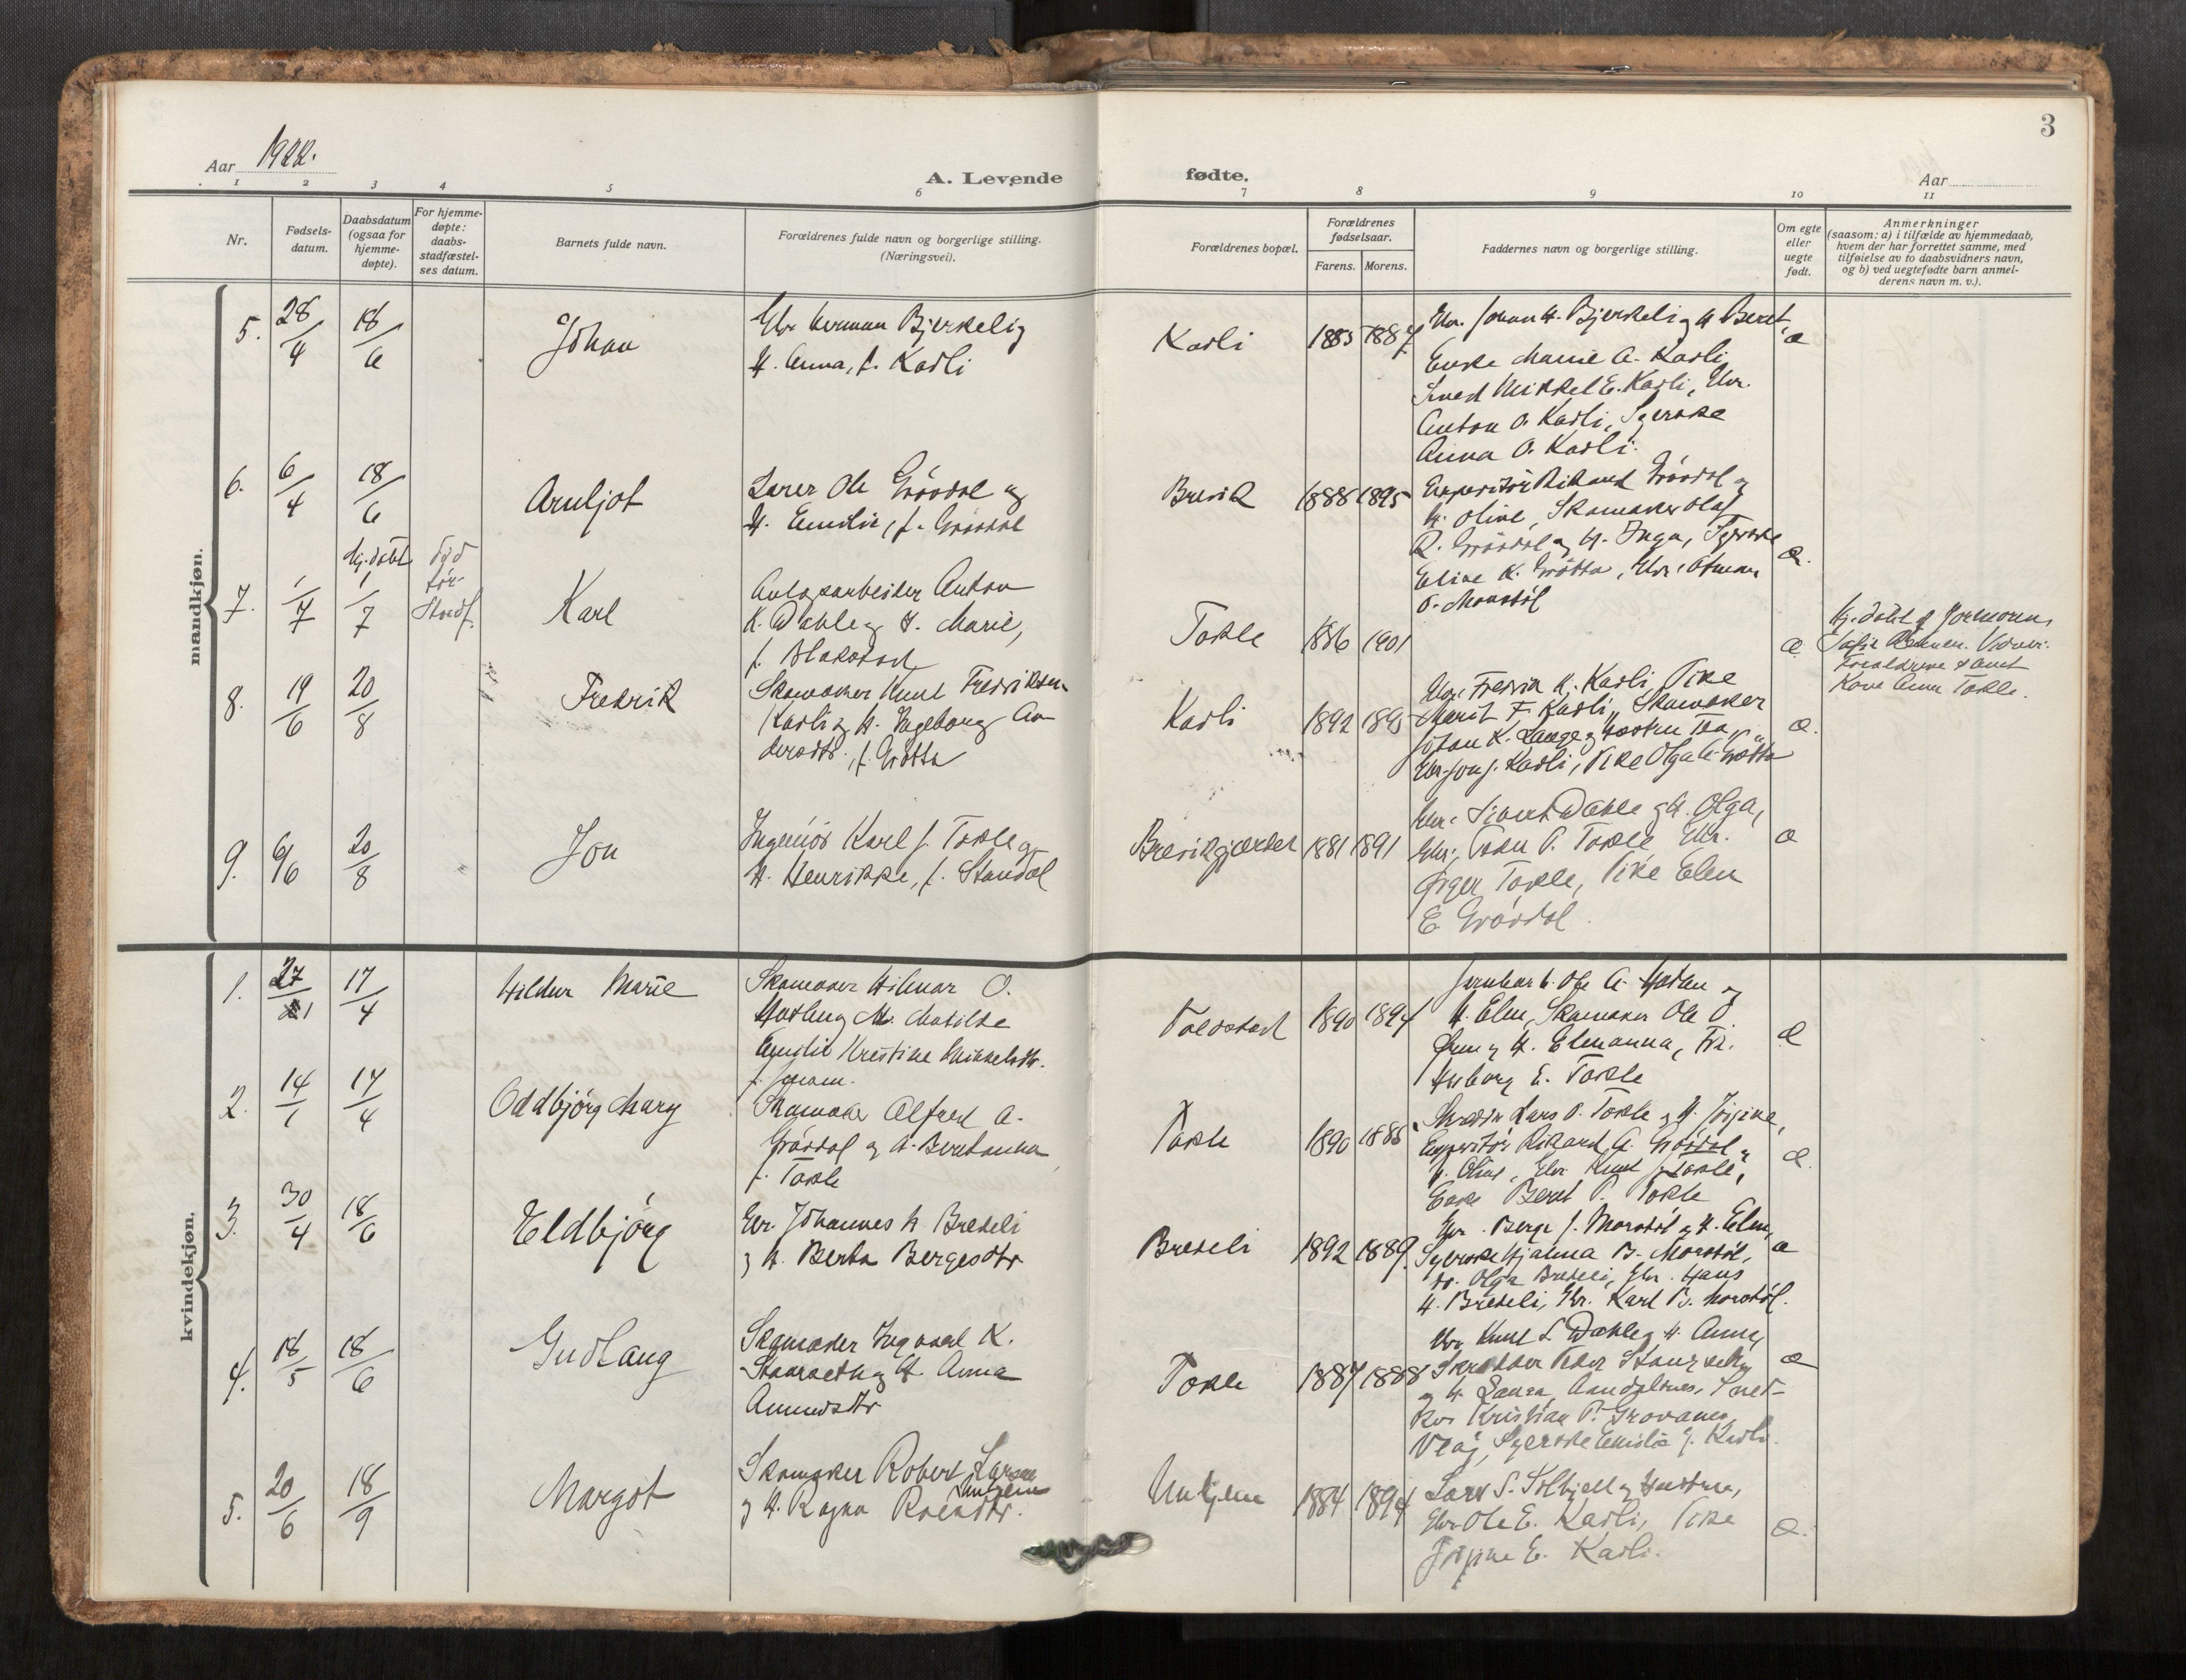 3
Aar 1922.
A. Levende
fødte.
Aar
1 2 3 4 5 6 7 8 9 10 11
Nr.
Fødsels-
datum.
Daabsdatum
(ogsaa for
hjemme-
døpte).
For hjemme-
døpte:
daabs-
stadfæstel-
ses datum.
Barnets fulde navn.
Forældrenes fulde navn og borgerlige stilling.
(Næringsvei).
Forældrenes bopæl.
Forældrenes
fødselsaar.
Farens. Morens.
Faddernes navn og borgerlige stilling.
Om egte
eller
uegte
født.
Anmerkninger
(saasom: a) i tilfælde av hjemmedaab,
hvem der har forrettet samme, med
tilføielse av to daabsvidners navn,
og b) ved uegtefødte barn anmel-
derens navn m. v.).
mandkjøn.
5. 28/4 18/6
Johan
Herman Bjerkeli og
H. Anna, f. Kårli
Kårli
1885 1887
Johan H. Bjerkeli og H. Beret,
Enke Marie A. Kårli
Smed Mikkel E. Kårli, Gbr.
Anton O. Kårli, Syerske
Anna O. Kårli.
æ
6. 6/4 18/6
Arnljot
Lærer Ole Grøvdal og
H. Emilie, f. Grøvdal
Brevik
1888 1895
Expeditør Rikard Grøvdal og
H. Oline, Skomaker Olaf
R. Grøvdal og H. Inga, Syerske
Eline K. Grøtta, Gbr.
æ.
7. 1/7
Hj. døbt
1/7
Død
før
Stadf.
Karl
Anlegsarbeider Anton
K. Dahle og H. Marie,
f.
Tokle
1886 1901
æ
Hj. døbt af Jormoren,
Kone Anna Tokle.
8. 19/6 20/8
Fredrik
Skomaker Knut Fredriksen
Kårli og H. Ingeborg An-
dersdtr. f. Grøtta
Kårli
1892 1895
Gbr. Fredrik K. Kårli, Pike
Marit F. Kårli, Skomaker
Johan K. Lange og Hustru Tea,
Gbr. Jon J. Kårli, Pike Olga A. Grøtta
æ.
9. 6/6 20/8
Jon
Ingeniør Karl J. Tokle og
H. Henrikke, f. Standal
Brevikgjærdet
1881 1891
Gbr. Sivert Dahle og H. Olga,
Gbr. Peder P. Tokle Gbr.
Ørger Tokle, Pike Elen
E. Grøvdal.
æ
kvindekjøn.
1. 27/1 17/4
Hildur Marie
Skomaker Hilmar O.
og M. Matilde
Emilie Kristine Mikkelsdtr.
Tolvstad
1890 1894
Ole A. og
H. Elen, Skomaker Ole O.
og H. Elenanna, Frk.
E. Tokle
æ
2. 14/1 17/4
Oddbjørg Mary
Skomaker Alfred A.
Grøvdal og H. Beretanna
f. Tokle
Tokle
1890 1888
Lars P. Tokle og H. Jørgine,
Expeditør Rikard A. Grøvdal og
H. Oline, Gbr. Knut J. Tokle,
Enke Beret P. Tokle
æ.
3. 30/4 18/6
Eldbjørg
Gbr. Johannes H. Bredeli
og H. Berta Bergesdtr
Bredeli
1892 1889.
Gbr. Berge J. Morstøl og H. Elen,
Syerske Hjalma B. Morstøl,
do. Olga Bredeli, Gbr. Hans
H. Bredeli, Gbr. Karl B. Morstøl.
æ
4. 18/5 18/6
Gudlaug
Skomaker Ingvald K.
og H. Anna
Amundsdtr
Tokle
1887 1888
Gbr. Knut L. Dahle og H. Anna,
Skrædder Peder
og H. Laura, Aandalsnes, Sned-
ker Kristian P. Grovanes,
Veøy, Syerske Emilie J. Kårli.
æ
5. 20/6 18/9
Margot
Skomaker Robert Larsen
Unhjem
og H. Ragna
Unhjem
1884 1894
Lars S. Solbjell og Hustru,
Gbr Ole E. Kårli, Pike
Jørgine E. Kårli.
æ.